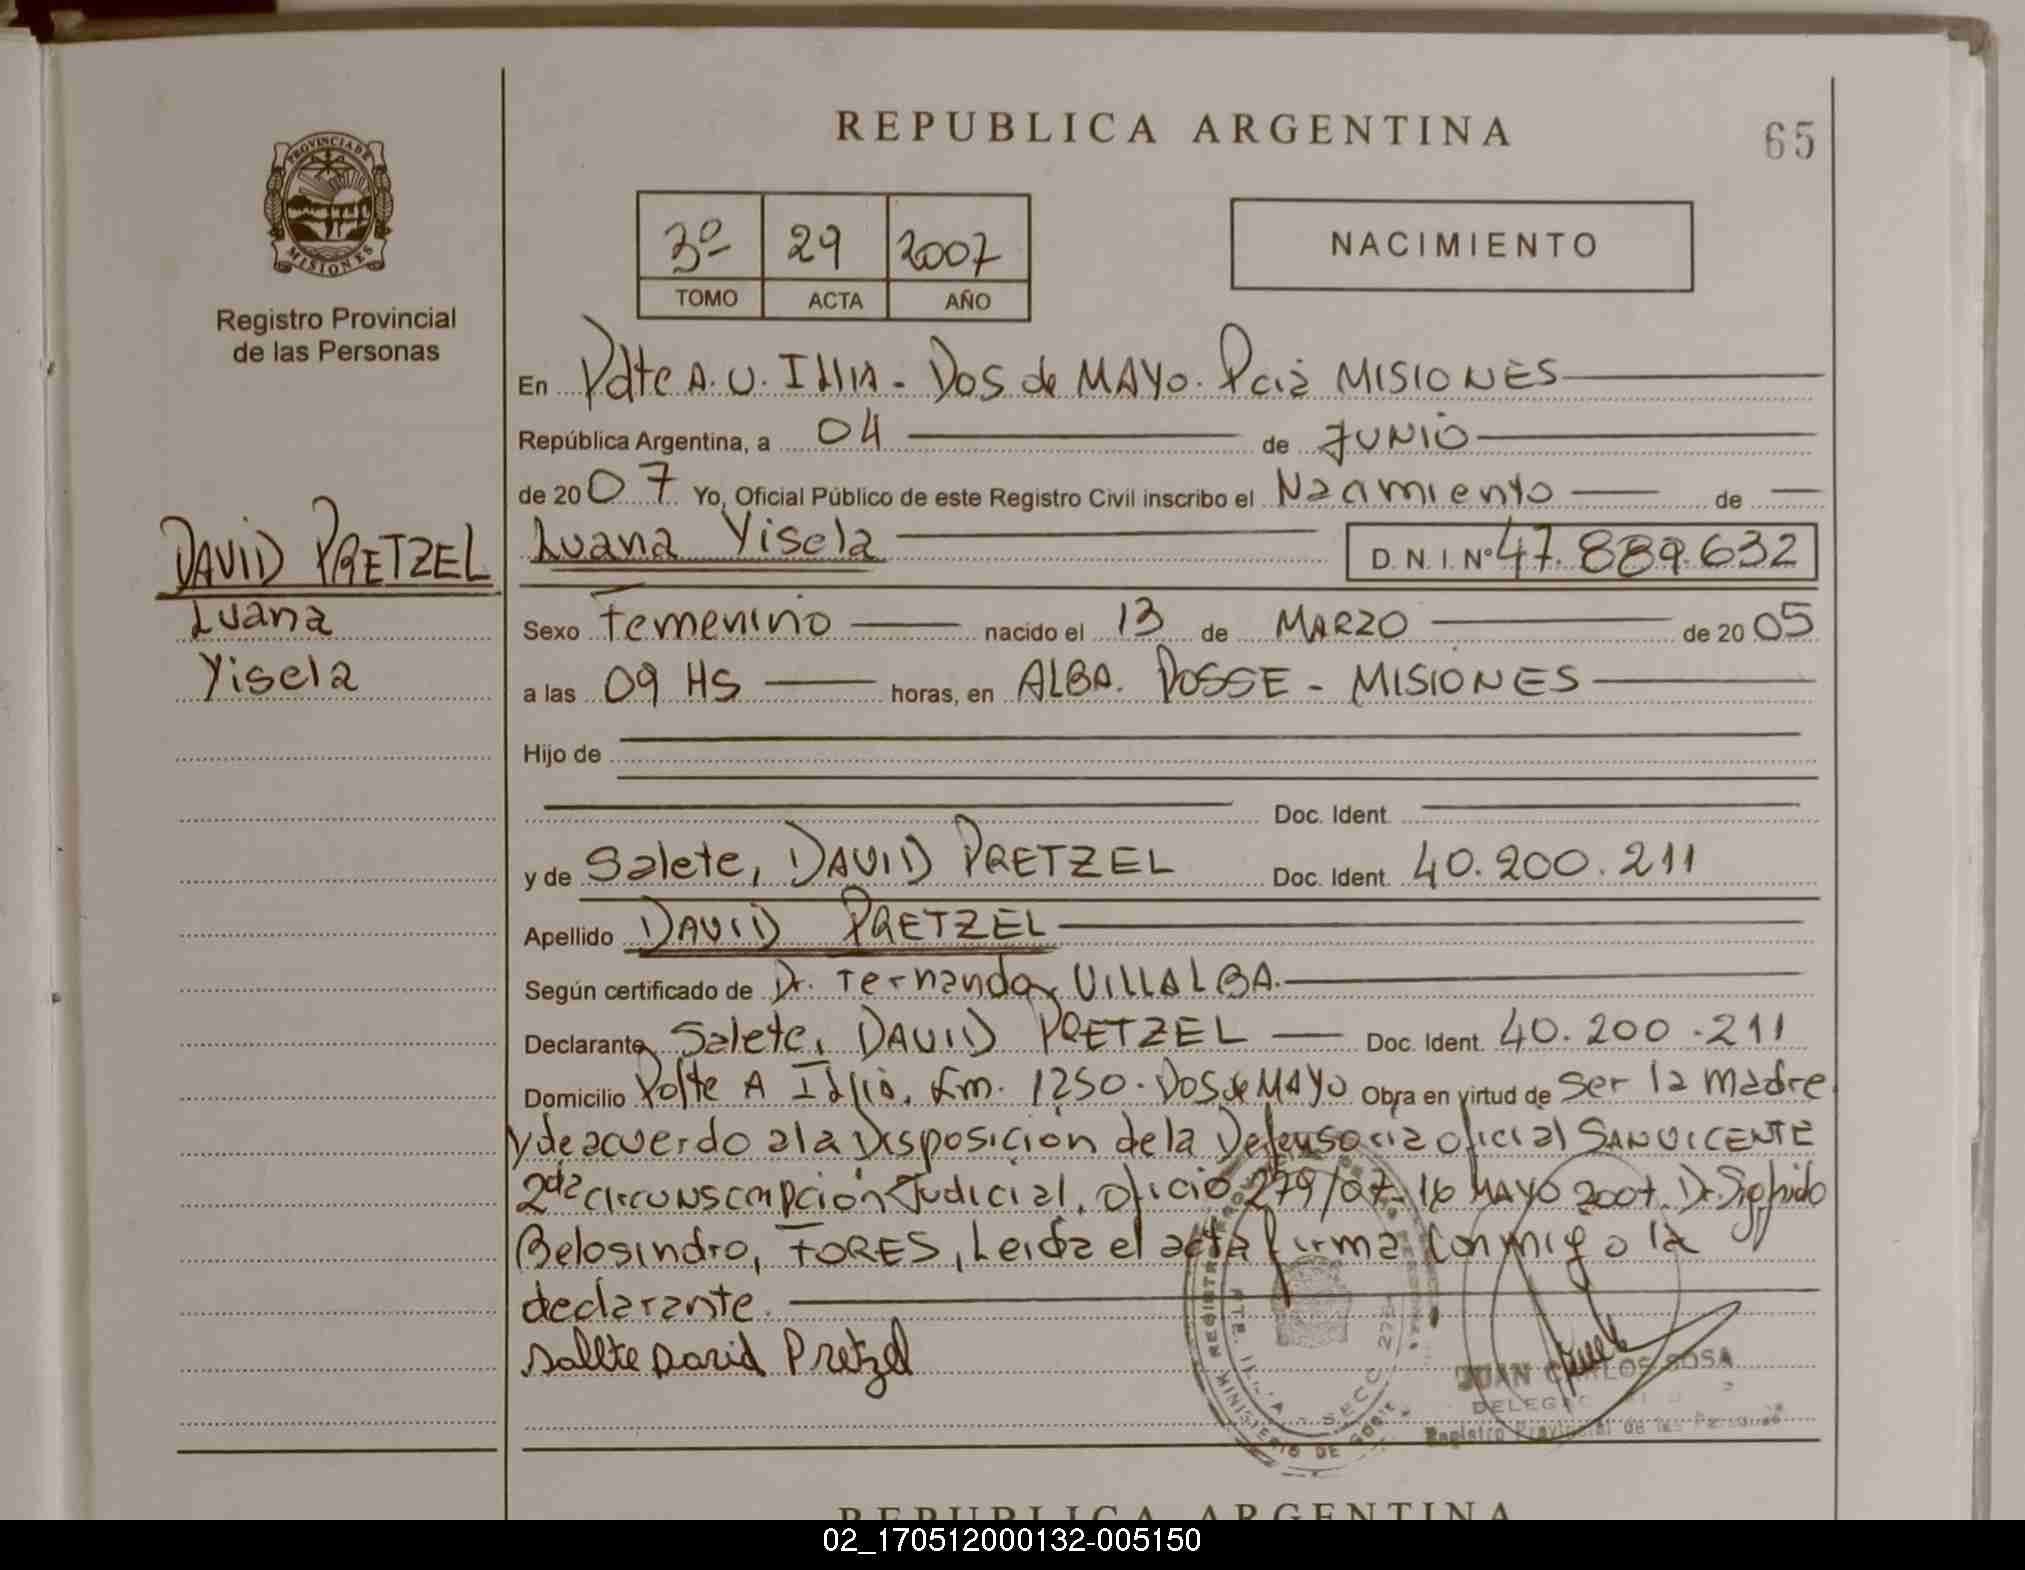 REPUBLICA ARGENTINA
65
PROVINCIA DE
MISIONES
Registro Provincial
de las Personas
3º 29 2007
TOMO ACTA AÑO
NACIMIENTO
En Pdte A. U. Illia - Dos de MAYO. Pcia MISIONES
República Argentina, a 04 de JUNIO
de 2007 Yo, Oficial Público de este Registro Civil inscribo el Nacimiento de
DAVID PRETZEL
Luana
Yisela
Luana Yisela D.N.I. Nº 47.889.632
Sexo Femenino nacido el 13 de MARZO de 2005
a las 09 HS horas, en ALBA. POSSE - MISIONES
Hijo de
Doc. Ident.
y de Salete, DAVID PRETZEL Doc. Ident. 40.200.211
Apellido DAVID PRETZEL
Según certificado de Dr. Fernando VILLALBA.
Declarante Salete, DAVID PRETZEL Doc. Ident. 40.200.211
Domicilio Pdte A Illia. Km. 1250. Dos de MAYO Obra en virtud de ser la madre
y de acuerdo a la Disposición de la Defensoria oficial SAN VICENTE
2da circunscripción Judicial, oficio 279/07. 16 MAYO 2007. Dr. Sigfrido
Belosindro, FORES, Leida el acta firma conmigo la
declarante.
Sallte David Pretzel
JUAN CARLOS SOSA
Registro Provincial de las Personas
MINISTERIO DE
REPUBLICA ARGENTINA
02_170512000132-005150